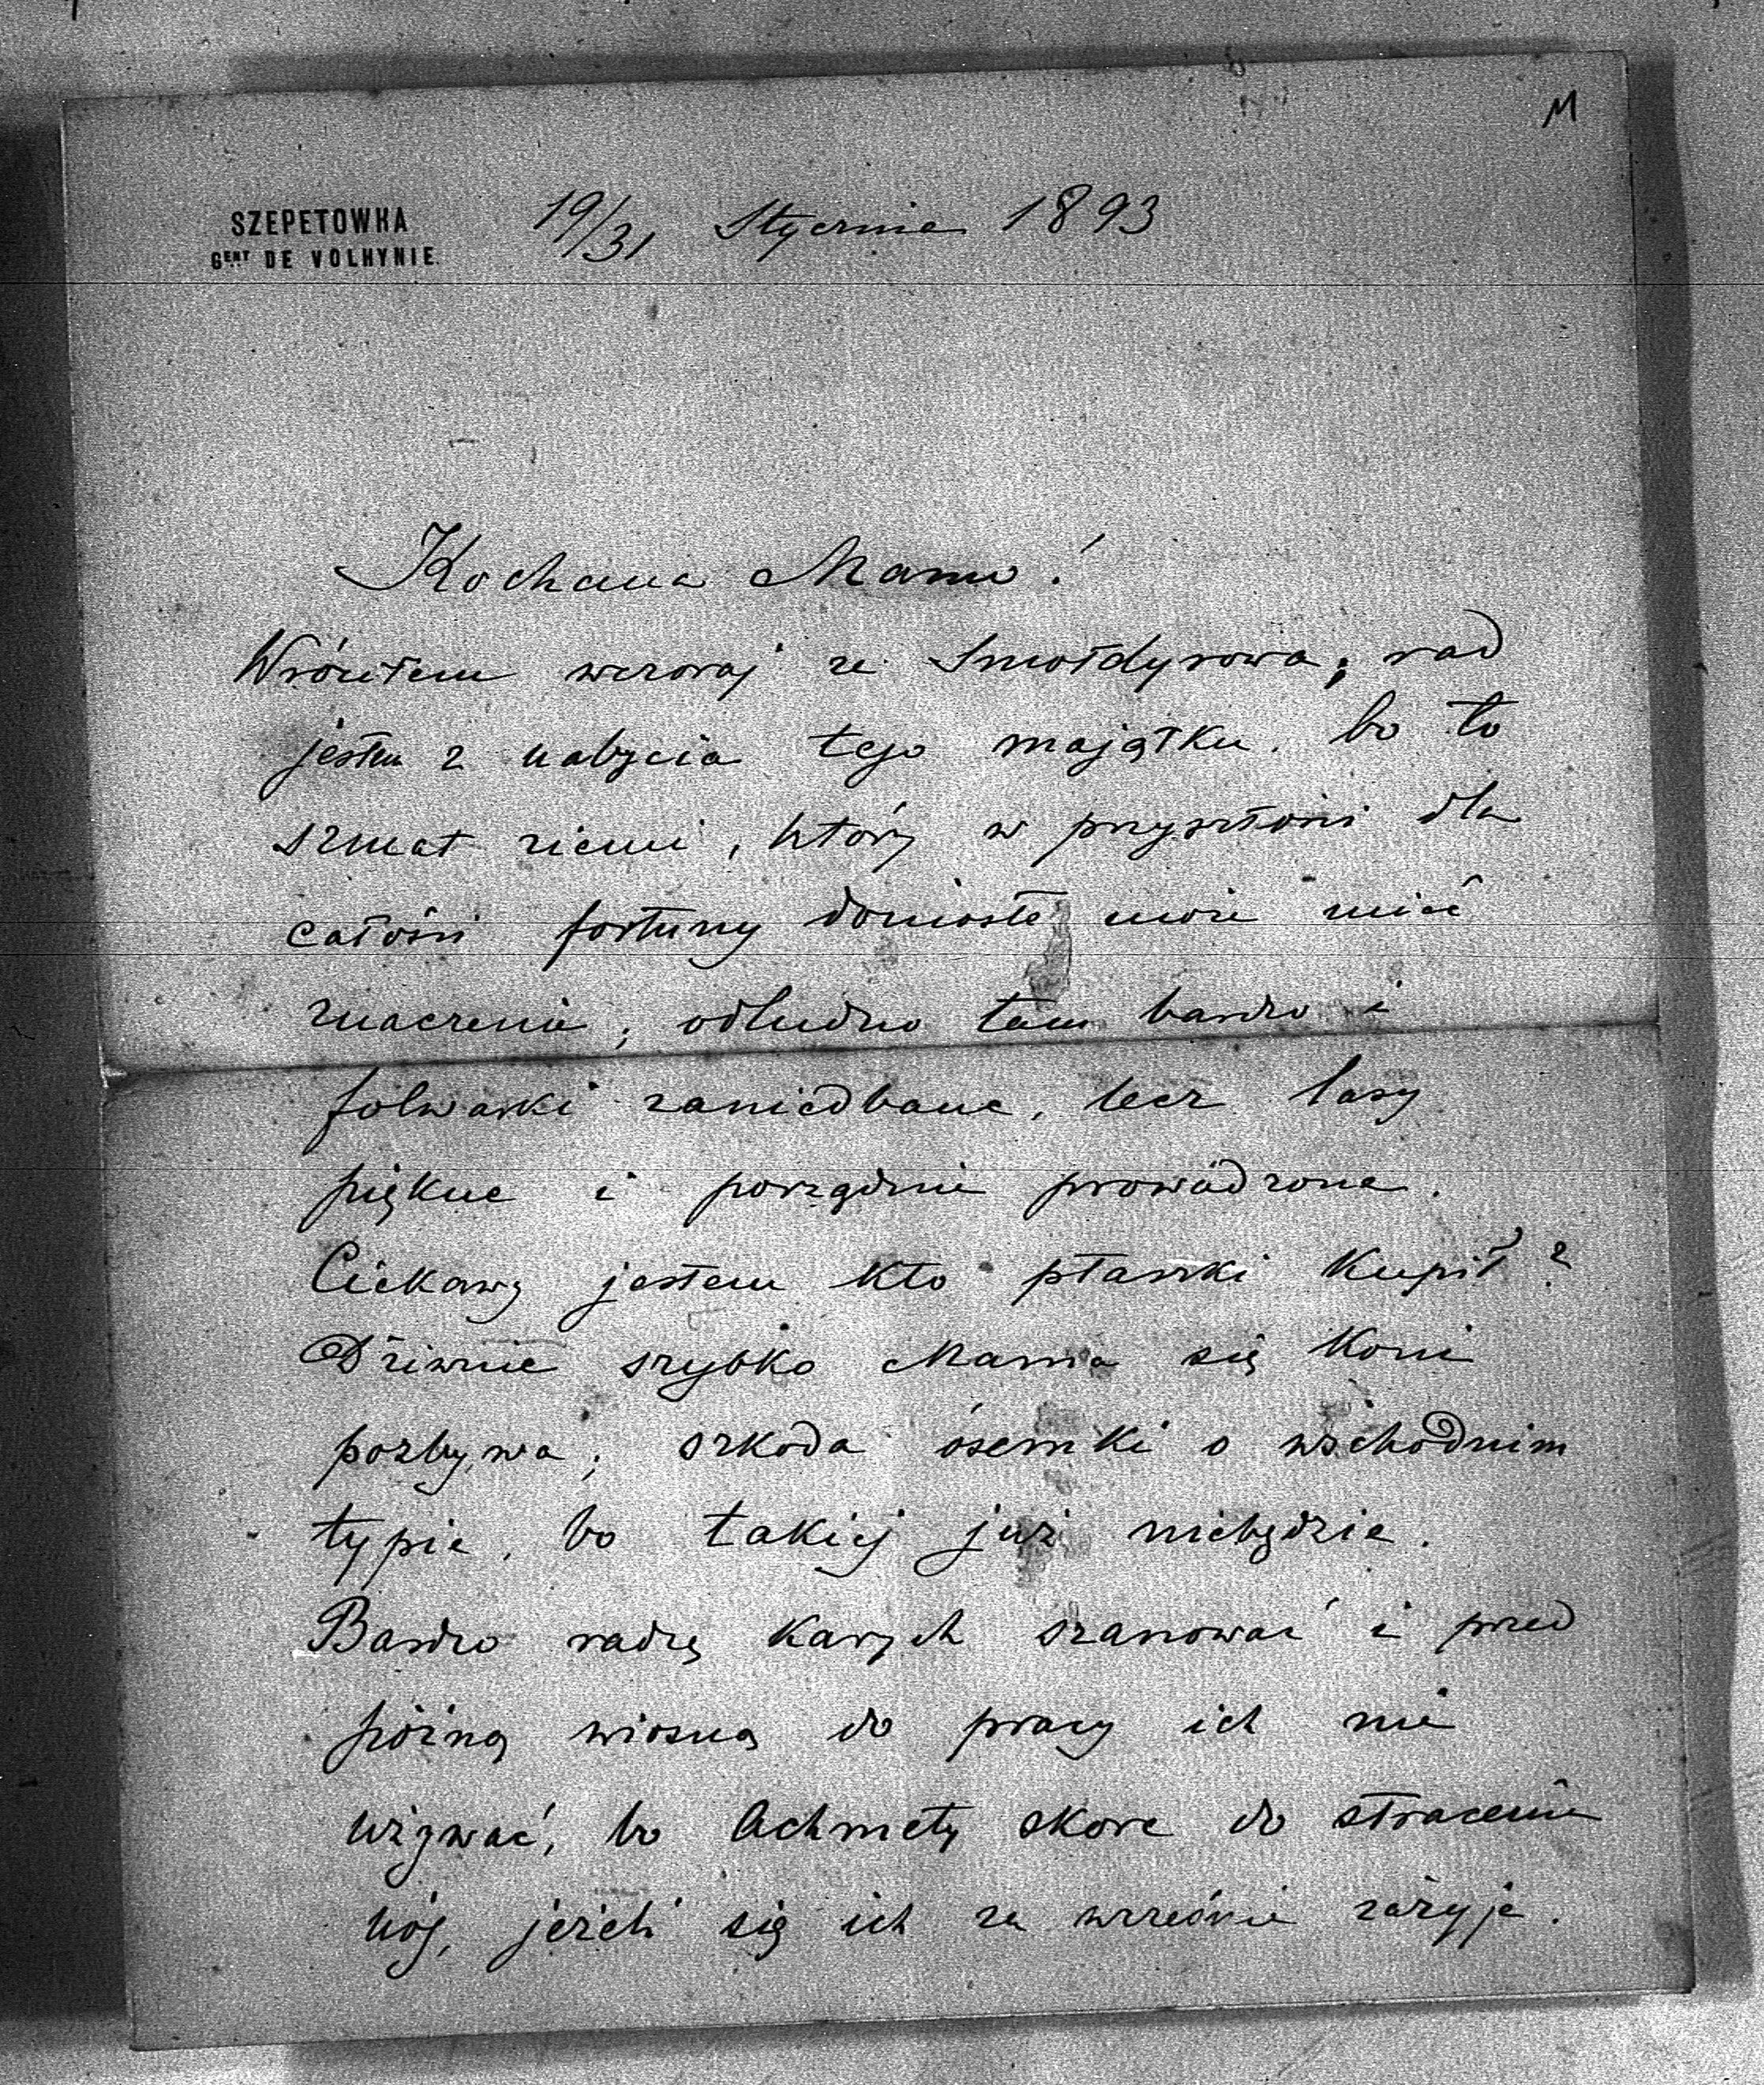 M
SZEPETOWKA
GENT DE VOLHYNIE.
19/31 Stycznia 1893
Kochana Mamo!
Wróciłem wczoraj ze Smołdyrowa; rad
jestem z nabycia tego majątku. bo to
szmat ziemi, który w przyszłości dla
całości fortuny doniosłe może mieć
znaczenie; odludno tam bardzo i
folwarki zaniedbane, lecz lasy
piękne i porządnie prowadzone.
Ciekawy jestem kto ptaszki kupił?
Dziwnie szybko Mama się koni
pozbywa; szkoda ósemki o wschodnim
typie, bo takiej już niebędzie.
Bardzo radzę karych szanować i przed
późną wiosną do pracy ich nie
używać, bo Achmety skore do stracenia
nóg, jeżeli się ich za wcześnie zażyje.